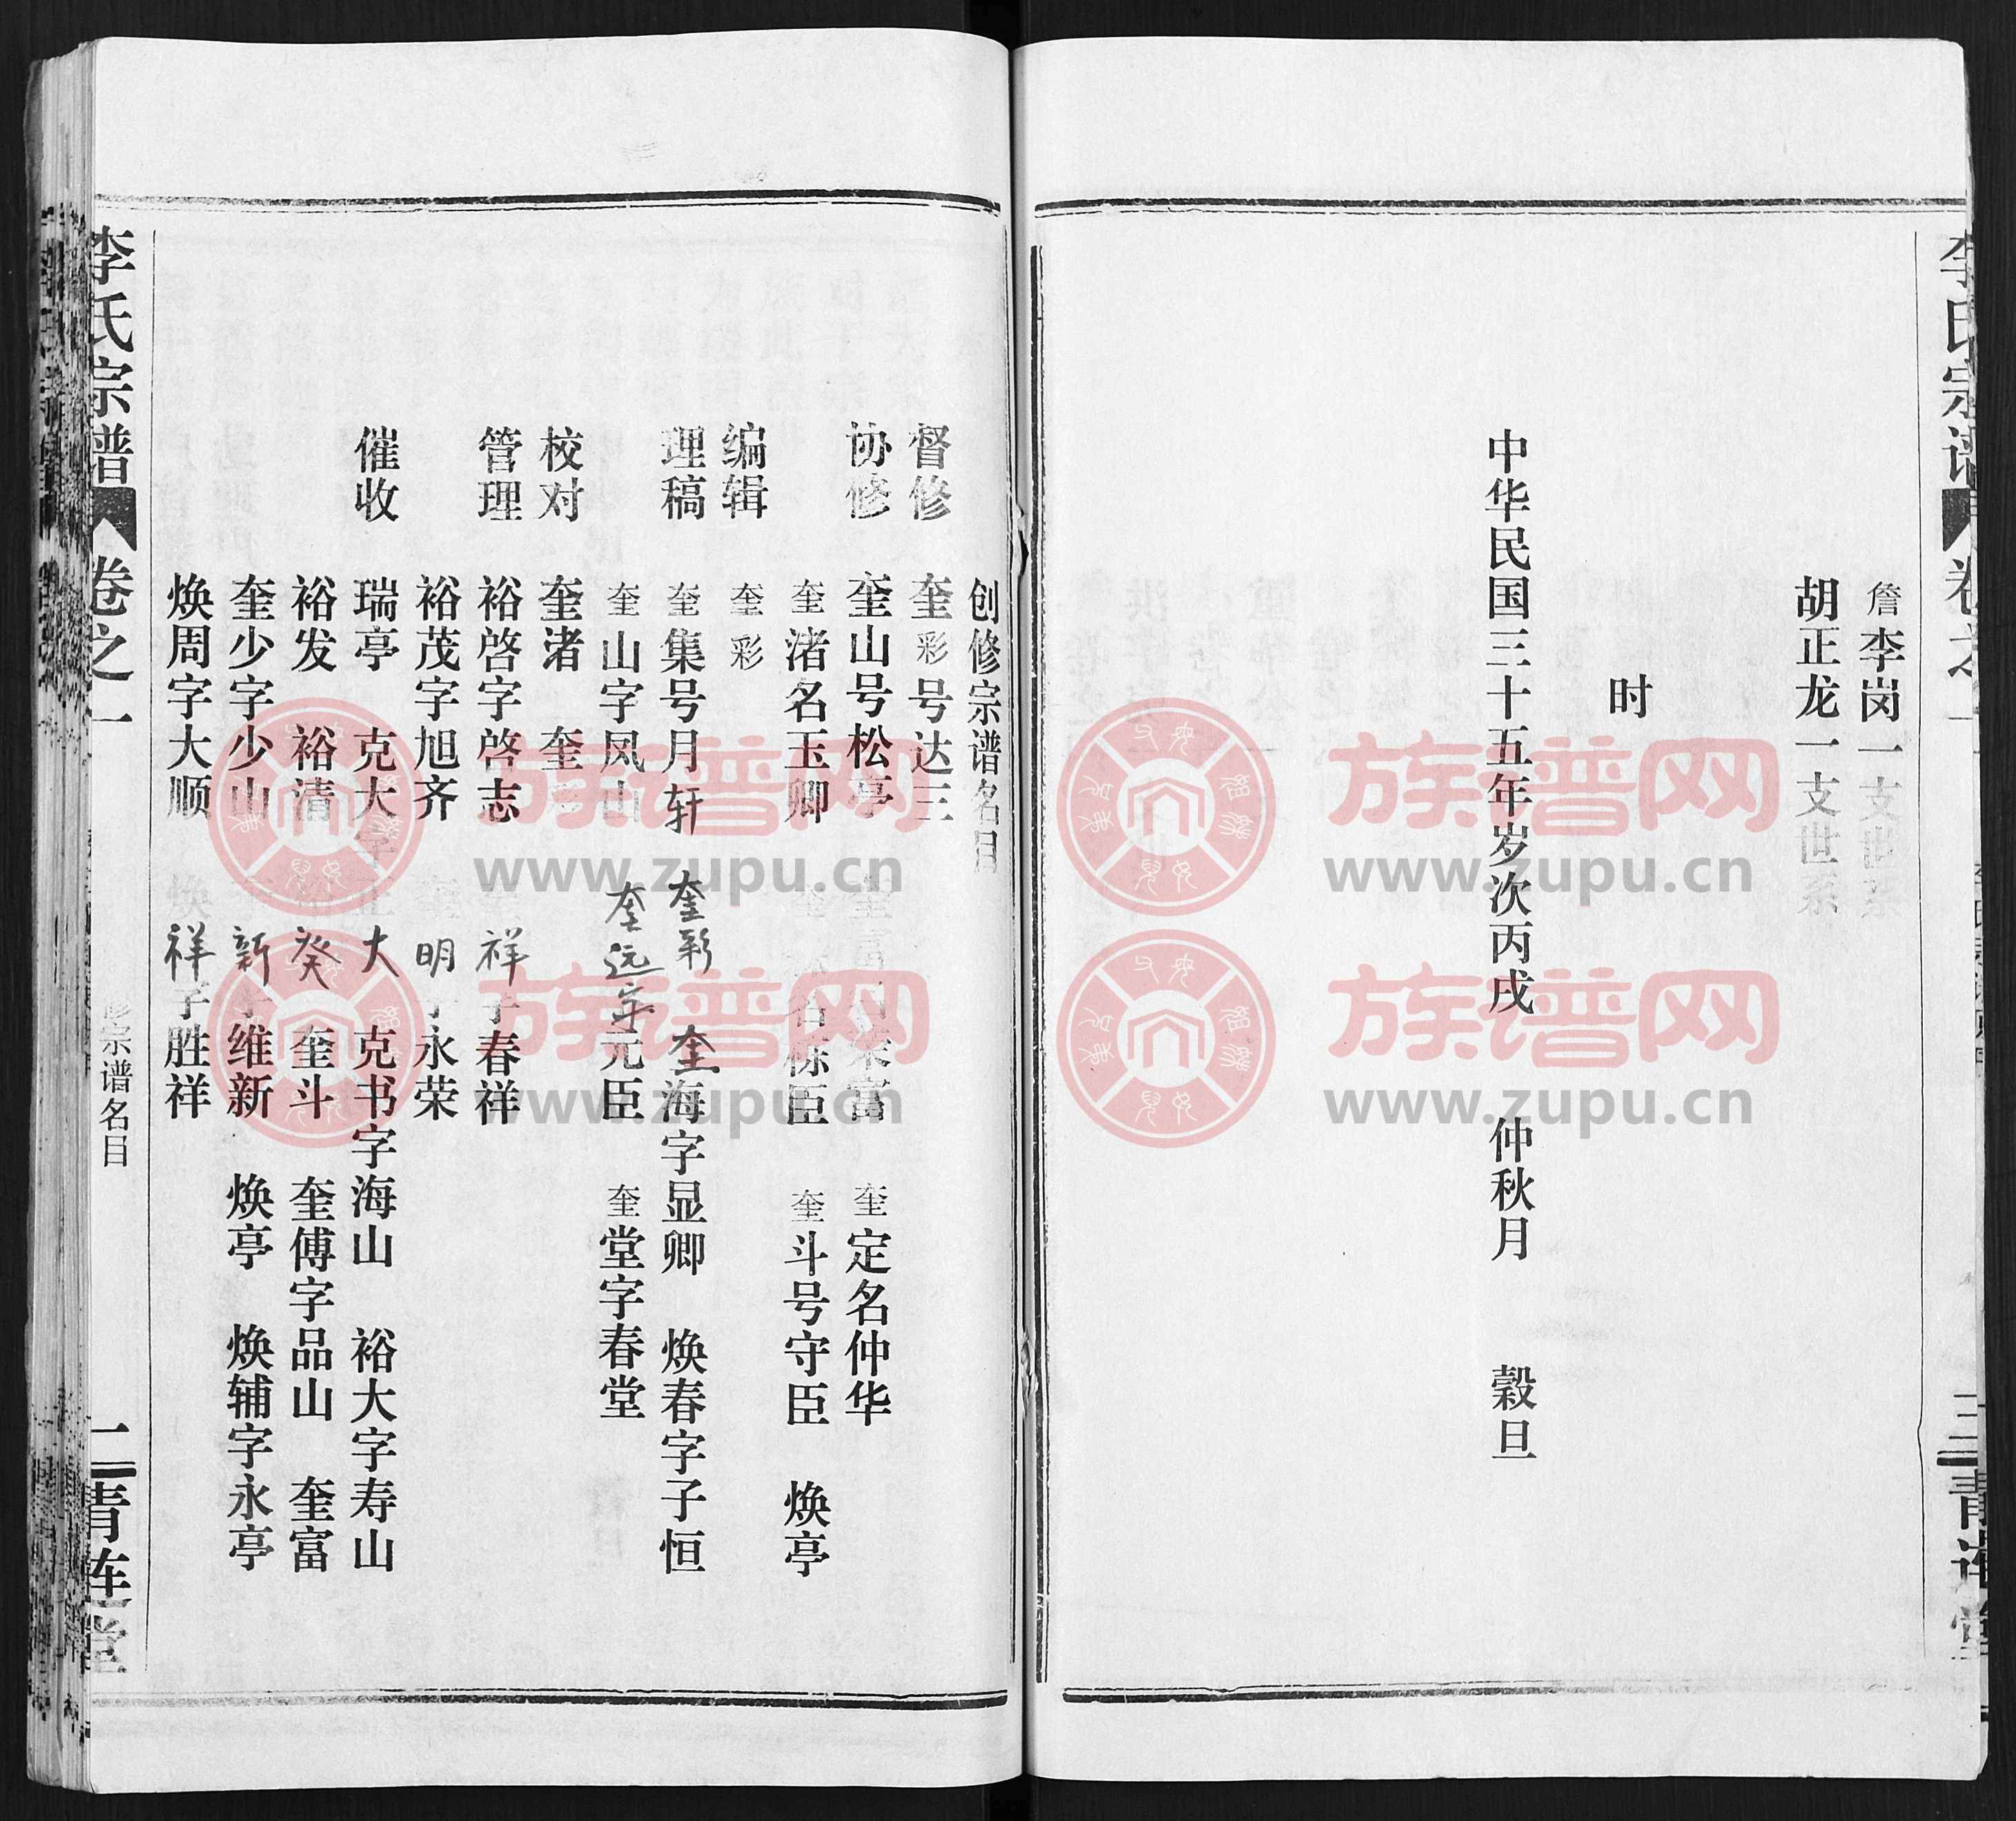 李氏宗谱
卷之一
三
青莲堂
詹李岗一支世系
胡正龙一支世系
时
中华民国三十五年岁次丙戌 仲秋月 穀旦
创修宗谱名目
督修 奎彩号达三
协修 奎山号松亭 荣富 奎定名仲华
奎渚名玉卿 臣 奎斗号守臣 焕亭
编辑 奎彩
理稿 奎集号月轩 奎彩 奎海字显卿 焕春字子恒
奎山字风山 奎远字元臣 奎堂字春堂
校对 奎渚 奎
管理 裕启字启志 祥字春祥
裕茂字旭齐 明字永荣
催收 瑞亭 克大字正大 克书字海山 裕大字寿山
裕发 裕清 裕癸 奎斗 奎傅字品山 奎富
奎少字少山 新字维新 焕亭 焕辅字永亭
焕周字大顺 焕祥字胜祥
李氏宗谱
卷之一
修宗谱名目
二
青莲堂
族谱网
www.zupu.cn
族谱网
www.zupu.cn
族谱网
www.zupu.cn
族谱网
www.zupu.cn